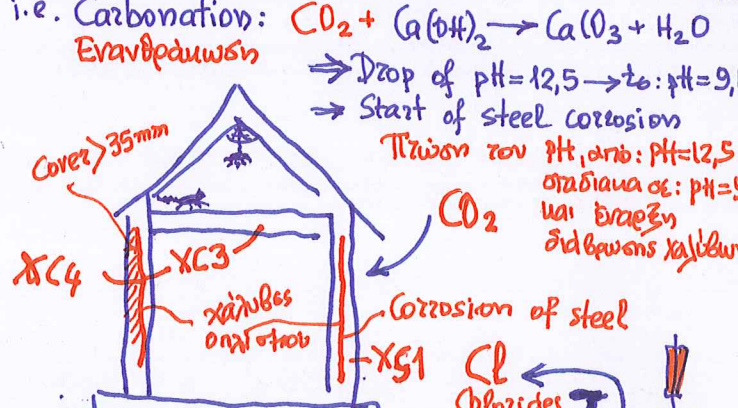 i.e. Carbonation: CO2 + Ca(OH)2 → CaCO3 + H2O
Ενανθράκωση
⇒ Drop of pH=12,5 → to: pH=9,
⇒ Start of steel corrosion
Πτώση του pH, από: pH=12,5
σταδιακα σε: pH=9
και έναρξη
διάβρωσης χαλύβων
Cover > 35mm
CO2
XC4
XC3
χάλυβες
οπλισμου
Corrosion of steel
XS1
Cl
Chlorides